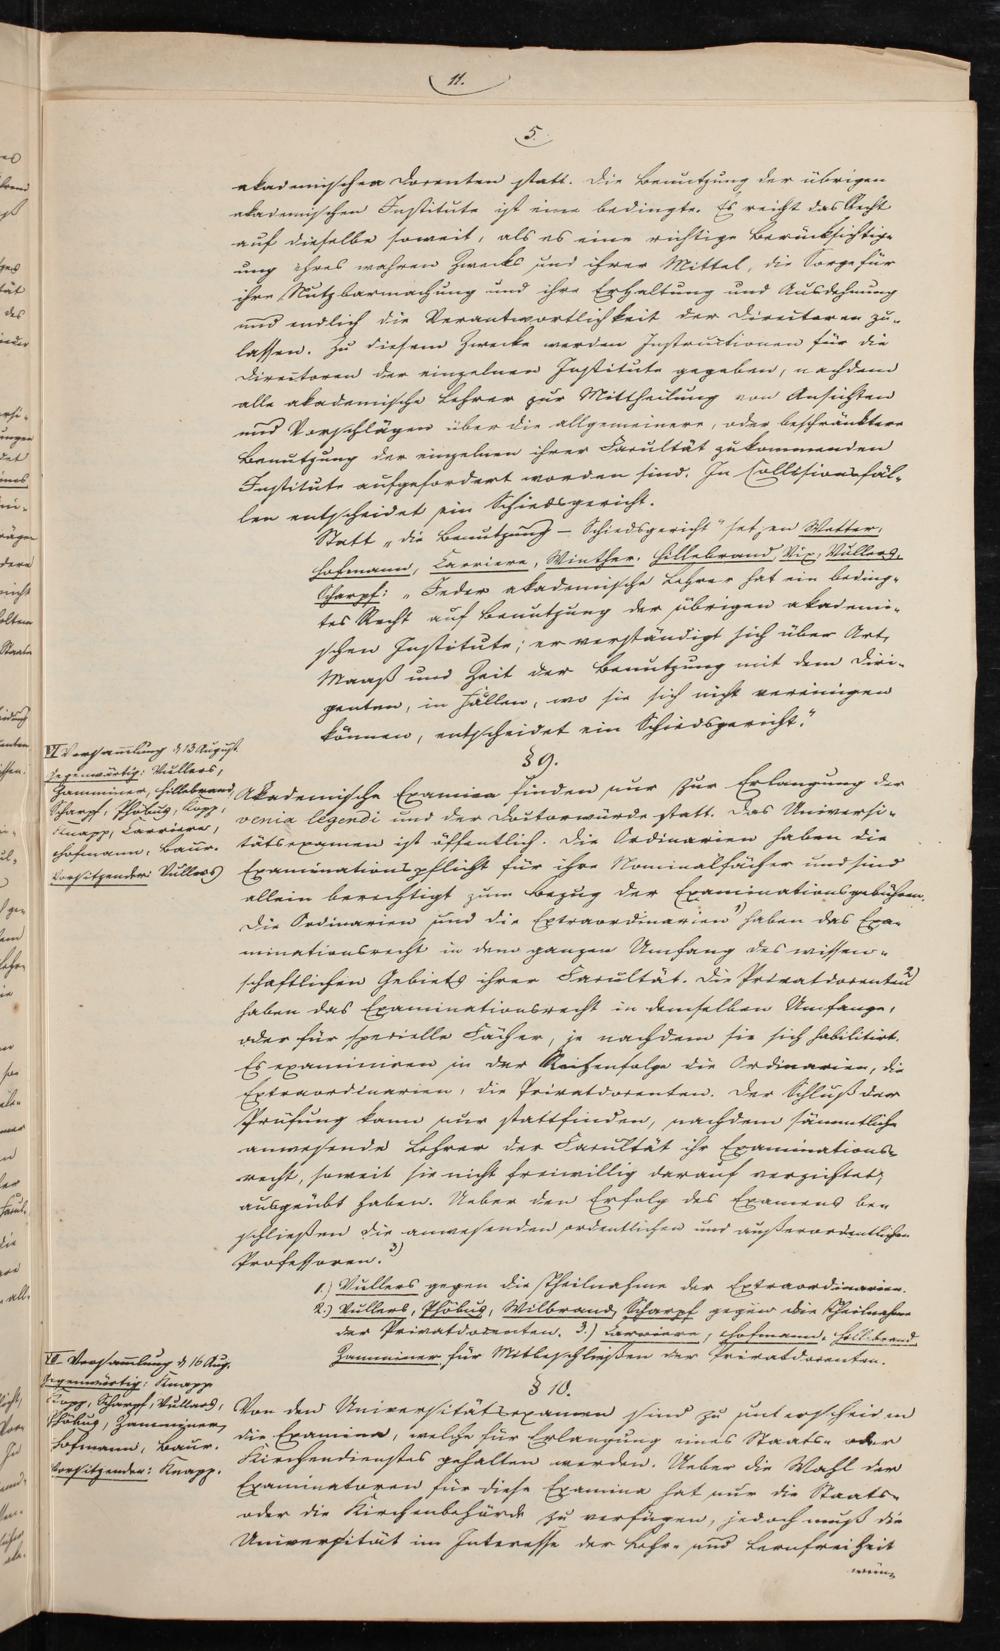 11.
5.
akademischen Docenten statt. Die Benutzung der übrigen
akademischen Institute ist eine bedingte. Es reicht das Recht
auf dieselbe soweit, als es eine richtige Berücksichtig-
ung ihres wahren Zwecks und ihrer Mittel, die Sorge für
ihre Nutzbarmachung und ihre Erhaltung und Ausdehnung
und endlich die Verantwortlichkeit der Directoren zu-
lassen. Zu diesem Zwecke werden Instructionen für die
Directoren der einzelnen Institute gegeben, nachdem
alle akademische Lehrer zur Mittheilung von Ansichten
und Vorschlägen über die allgemeinere, oder beschränktere
Benutzung der einzelnen ihrer Facultät zukommenden
Institute aufgefordert worden sind. In Collisionsfäl-
len entscheidet ein Schiedsgericht.
Statt „die Benutzung – Schiedsgericht" setzen Wetter,
Hofmann, Carriere, Winther, Hillebrand, Vix, Vullers,
Scharpf: „Jeder akademische Lehrer hat ein beding-
tes Recht auf Benutzung der übrigen akademi-
schen Institute; er verständigt sich über Art,
Maaß und Zeit der Benutzung mit dem Diri-
genten, in Fällen, wo sie sich nicht vereinigen
können, entscheidet ein Schiedsgericht."
§ 9.
VI Versam̄lung d 13 August.
Gegenwärtig: Vullers,
Zamminer, Hillebrand,
Scharpf, Phöbus, Kopp,
Knapp, Carriere,
Hofmann, Baur.
Vorsitzender: Vullers
Akademische Examina finden nur zur Erlangung der
venia legendi und der Doctorwürde statt. Das Universi-
tätsexamen ist öffentlich. Die Ordinarien haben die
Examinationspflicht für ihre Nominalfächer und sind
allein berechtigt zum Bezug der Examinationsgebühren.
Die Ordinarien und die Extraordinarien 1) haben das Exa-
minationsrecht in dem ganzen Umfang des wissen-
schaftlichen Gebiets ihrer Facultät. Die Privatdocenten 2)
haben das Examinationsrecht in demselben Umfange,
oder für specielle Fächer, je nachdem sie sich habilitirt.
Es examiniren in der Reihenfolge die Ordinarien, die
Extraordinarien, die Privatdocenten. Der Schluß der
Prüfung kann nur stattfinden, nachdem sämmtliche
anwesende Lehrer der Facultät ihr Examinations-
recht, soweit sie nicht freiwillig darauf verzichtet,
ausgeübt haben. Ueber den Erfolg des Examens be-
schließen die anwesenden ordentlichen und außerordentlichen
Professoren. 3)
1.) Vullers gegen die Theilnahme der Extraordinarien.
2.) Vullers, Phöbus, Wilbrand, Scharpf gegen die Theilnahme
der Privatdocenten. 3.) Carriere, Hofmann, Hillebrand
Zamminer für Mitbeschließen der Privatdocenten.
§ 10.
VII. Versam̄lung d 16 Aug.
Gegenwärtig: Knapp
Kopp, Scharpf, Vullers,
Phöbus, Zamminer,
Hofmann, Baur.
Vorsitzender: Knapp.
Von den Universitätsexamen sind zu unterscheiden
die Examina, welche für Erlangung eines Staats- oder
Kirchendienstes gehalten werden. Ueber die Wahl der
Examinatoren für diese Examina hat nur die Staats-
oder die Kirchenbehörde zu verfügen, jedoch muß die
Universität im Interesse der Lehr- und Lernfreiheit
wün-